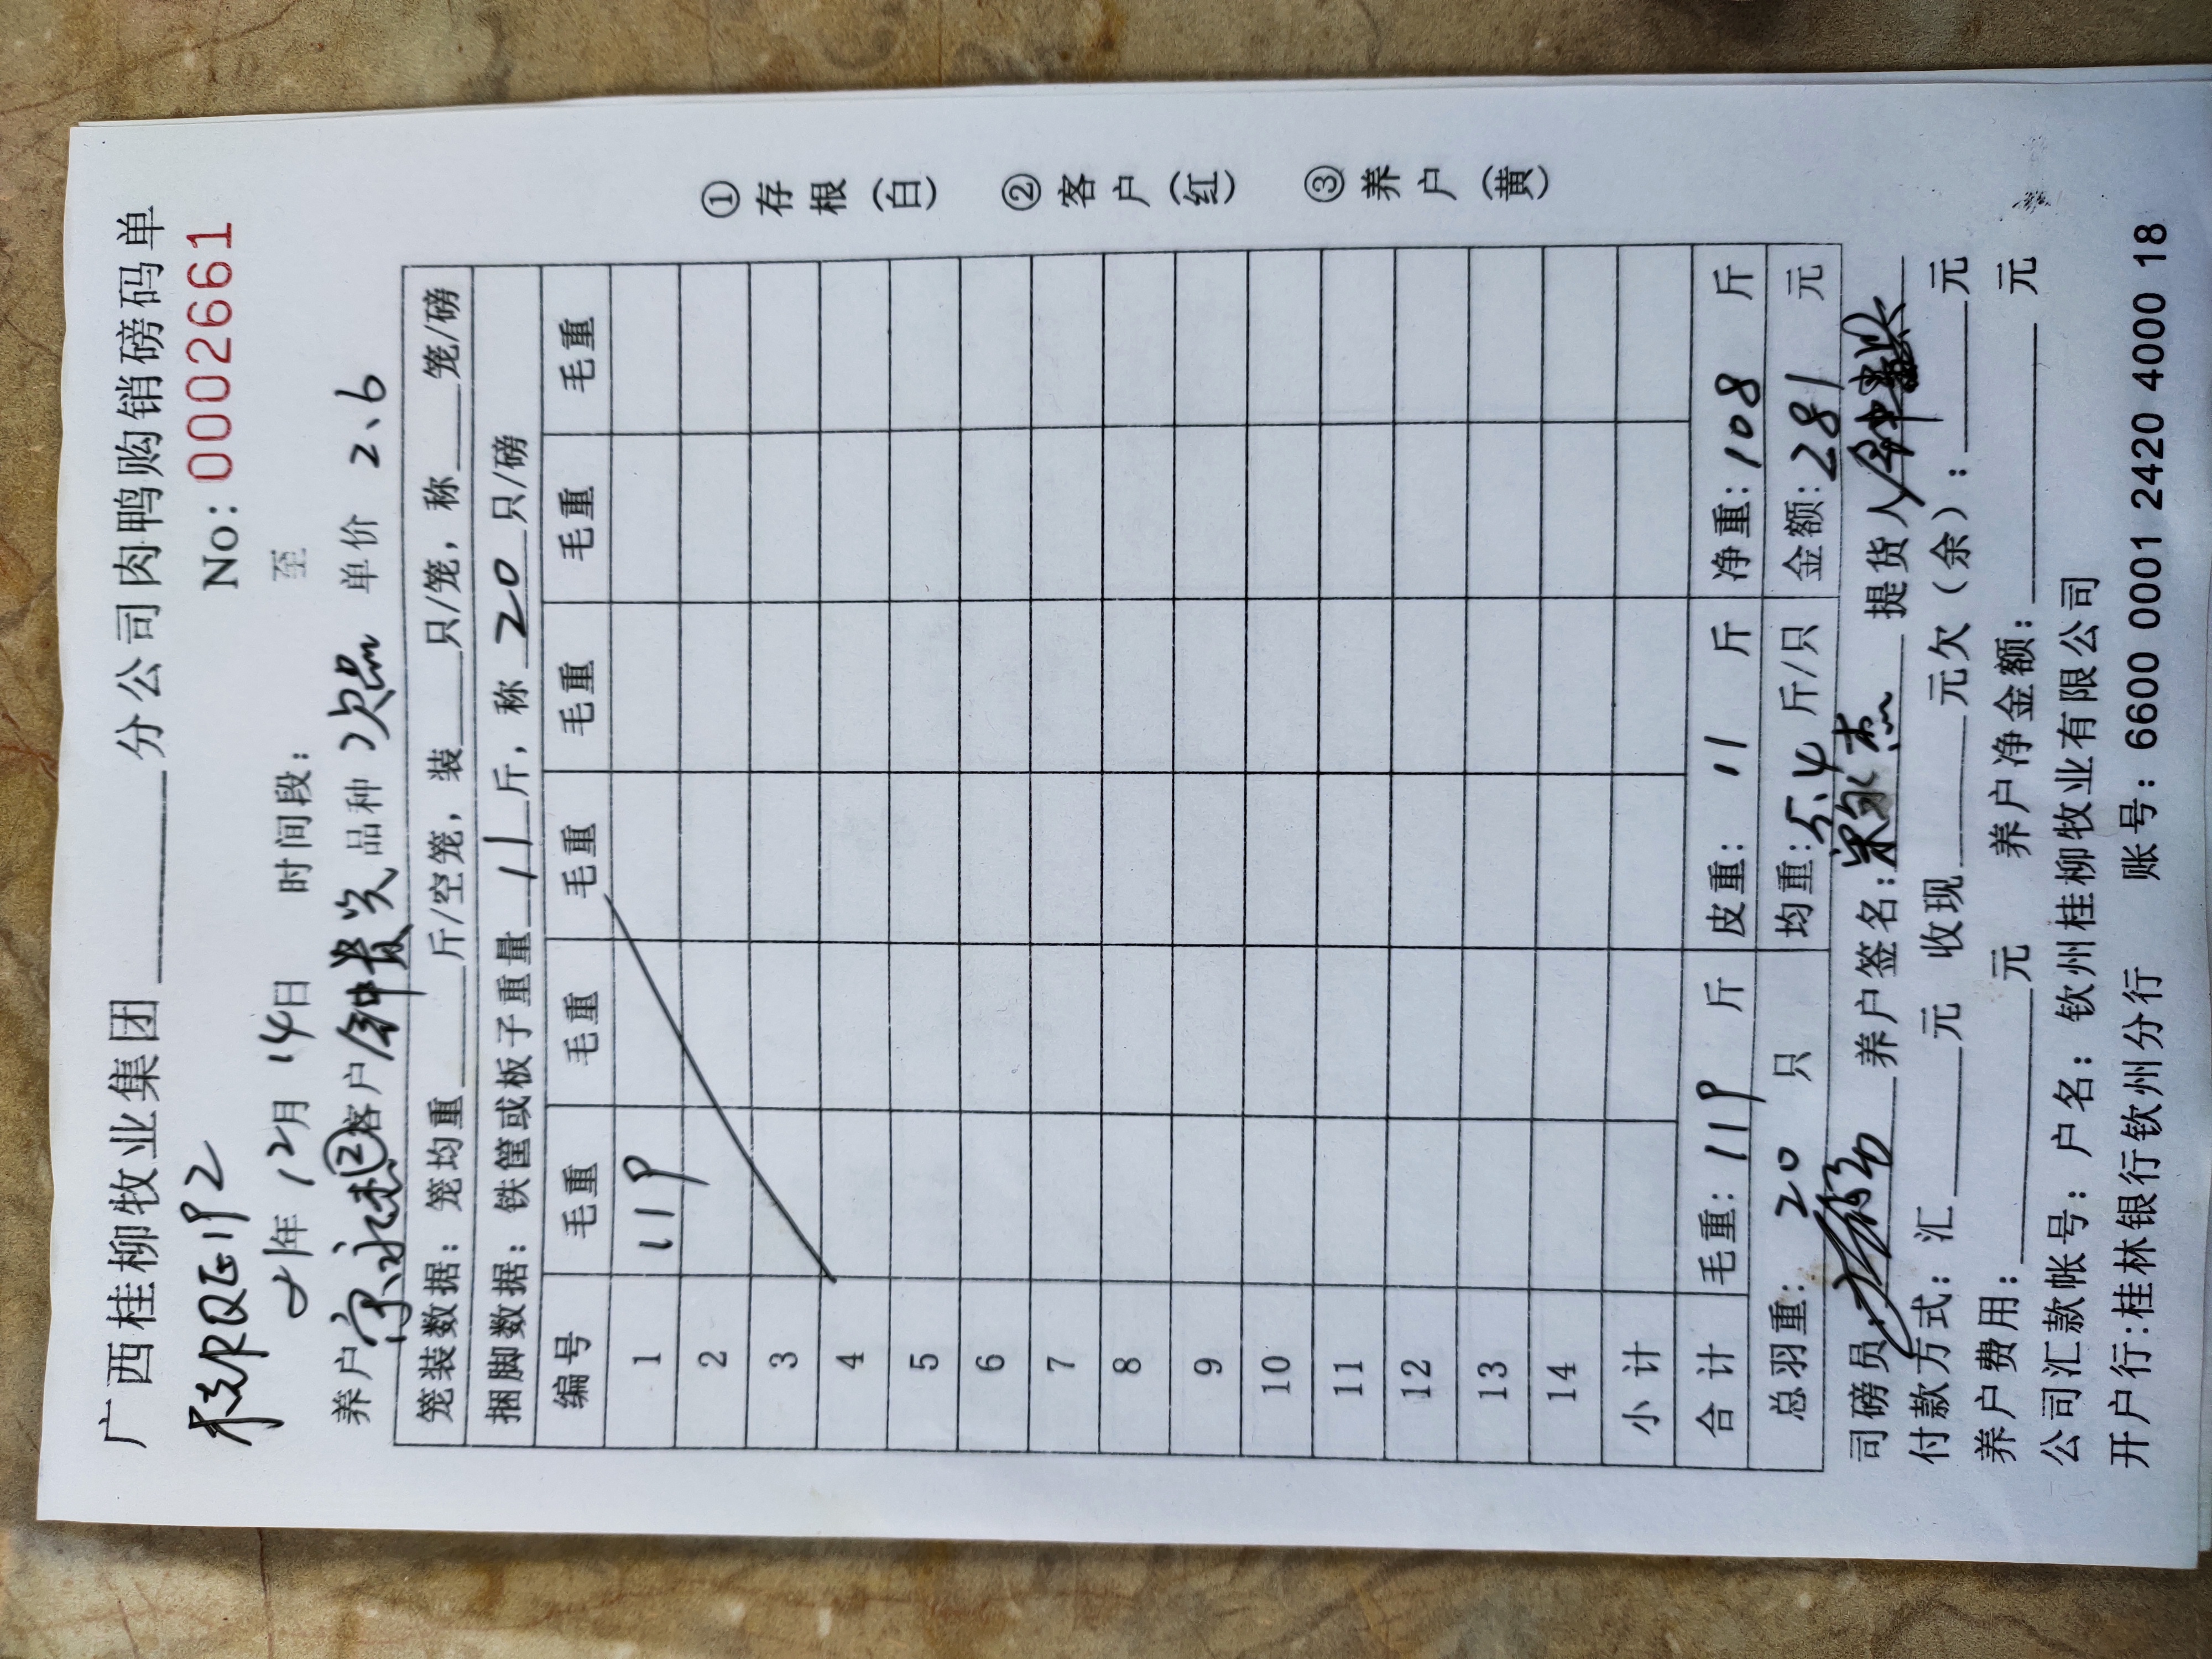 广西桂柳牧业集团______分公司肉鸭购销磅码单
No: 0002661
21年 12月 14日 时间段: 至
养户 ② 客户 钟贵 品种 次品 单价 2.6
笼装数据: 笼均重___斤/空笼, 装___只/笼, 称___笼/磅
捆脚数据: 铁筐或板子重量 11 斤, 称 20 只/磅
编号 毛重 毛重 毛重 毛重 毛重 毛重
1 119
2
3
4
5
6
7
8
9
10
11
12
13
14
小计
合计 毛重: 119 斤 皮重: 11 斤 净重: 108 斤
总羽重: 20 只 均重: 5.4 斤/只 金额: 281 元
司磅员: 养户签名: 提货人
付款方式: 汇______元 收现______元欠(余):______元
养户费用:______元 养户净金额:______元
公司汇款帐号: 户名: 钦州桂柳牧业有限公司
开户行:桂林银行钦州分行 账号: 6600 0001 2420 4000 18
①存根(白) ②客户(红) ③养户(黄)